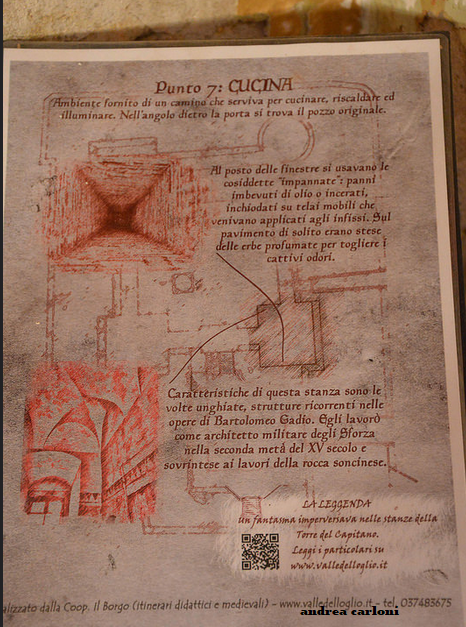 Punto 7: CUCINA
Ambiente fornito di un camino che serviva per cucinare, riscaldare ed
illuminare. Nell'angolo dietro la porta si trova il pozzo originale.
Al posto delle finestre si usavano le
cosiddette "impannate": panni
imbevuti di olio o incerati,
inchiodati su telai mobili che
venivano applicati agli infissi. Sul
pavimento di solito erano stese
delle erbe profumate per togliere i
cattivi odori.
Caratteristiche di questa stanza sono le
volte unghiate, strutture ricorrenti nelle
opere di Bartolomeo Gadio. Egli lavorò
come architetto militare degli Sforza
nella seconda metà del XV secolo e
sovrintese ai lavori della rocca soncinese.
LA LEGGENDA
un fantasma imperversava nelle stanze della
Torre del Capitano.
Leggi i particolari su
www.valledelloglio.it
alizzato dalla Coop. Il Borgo (itinerari didattici e medievali) - www.valledelloglio.it - tel. 037483675
andrea carloni